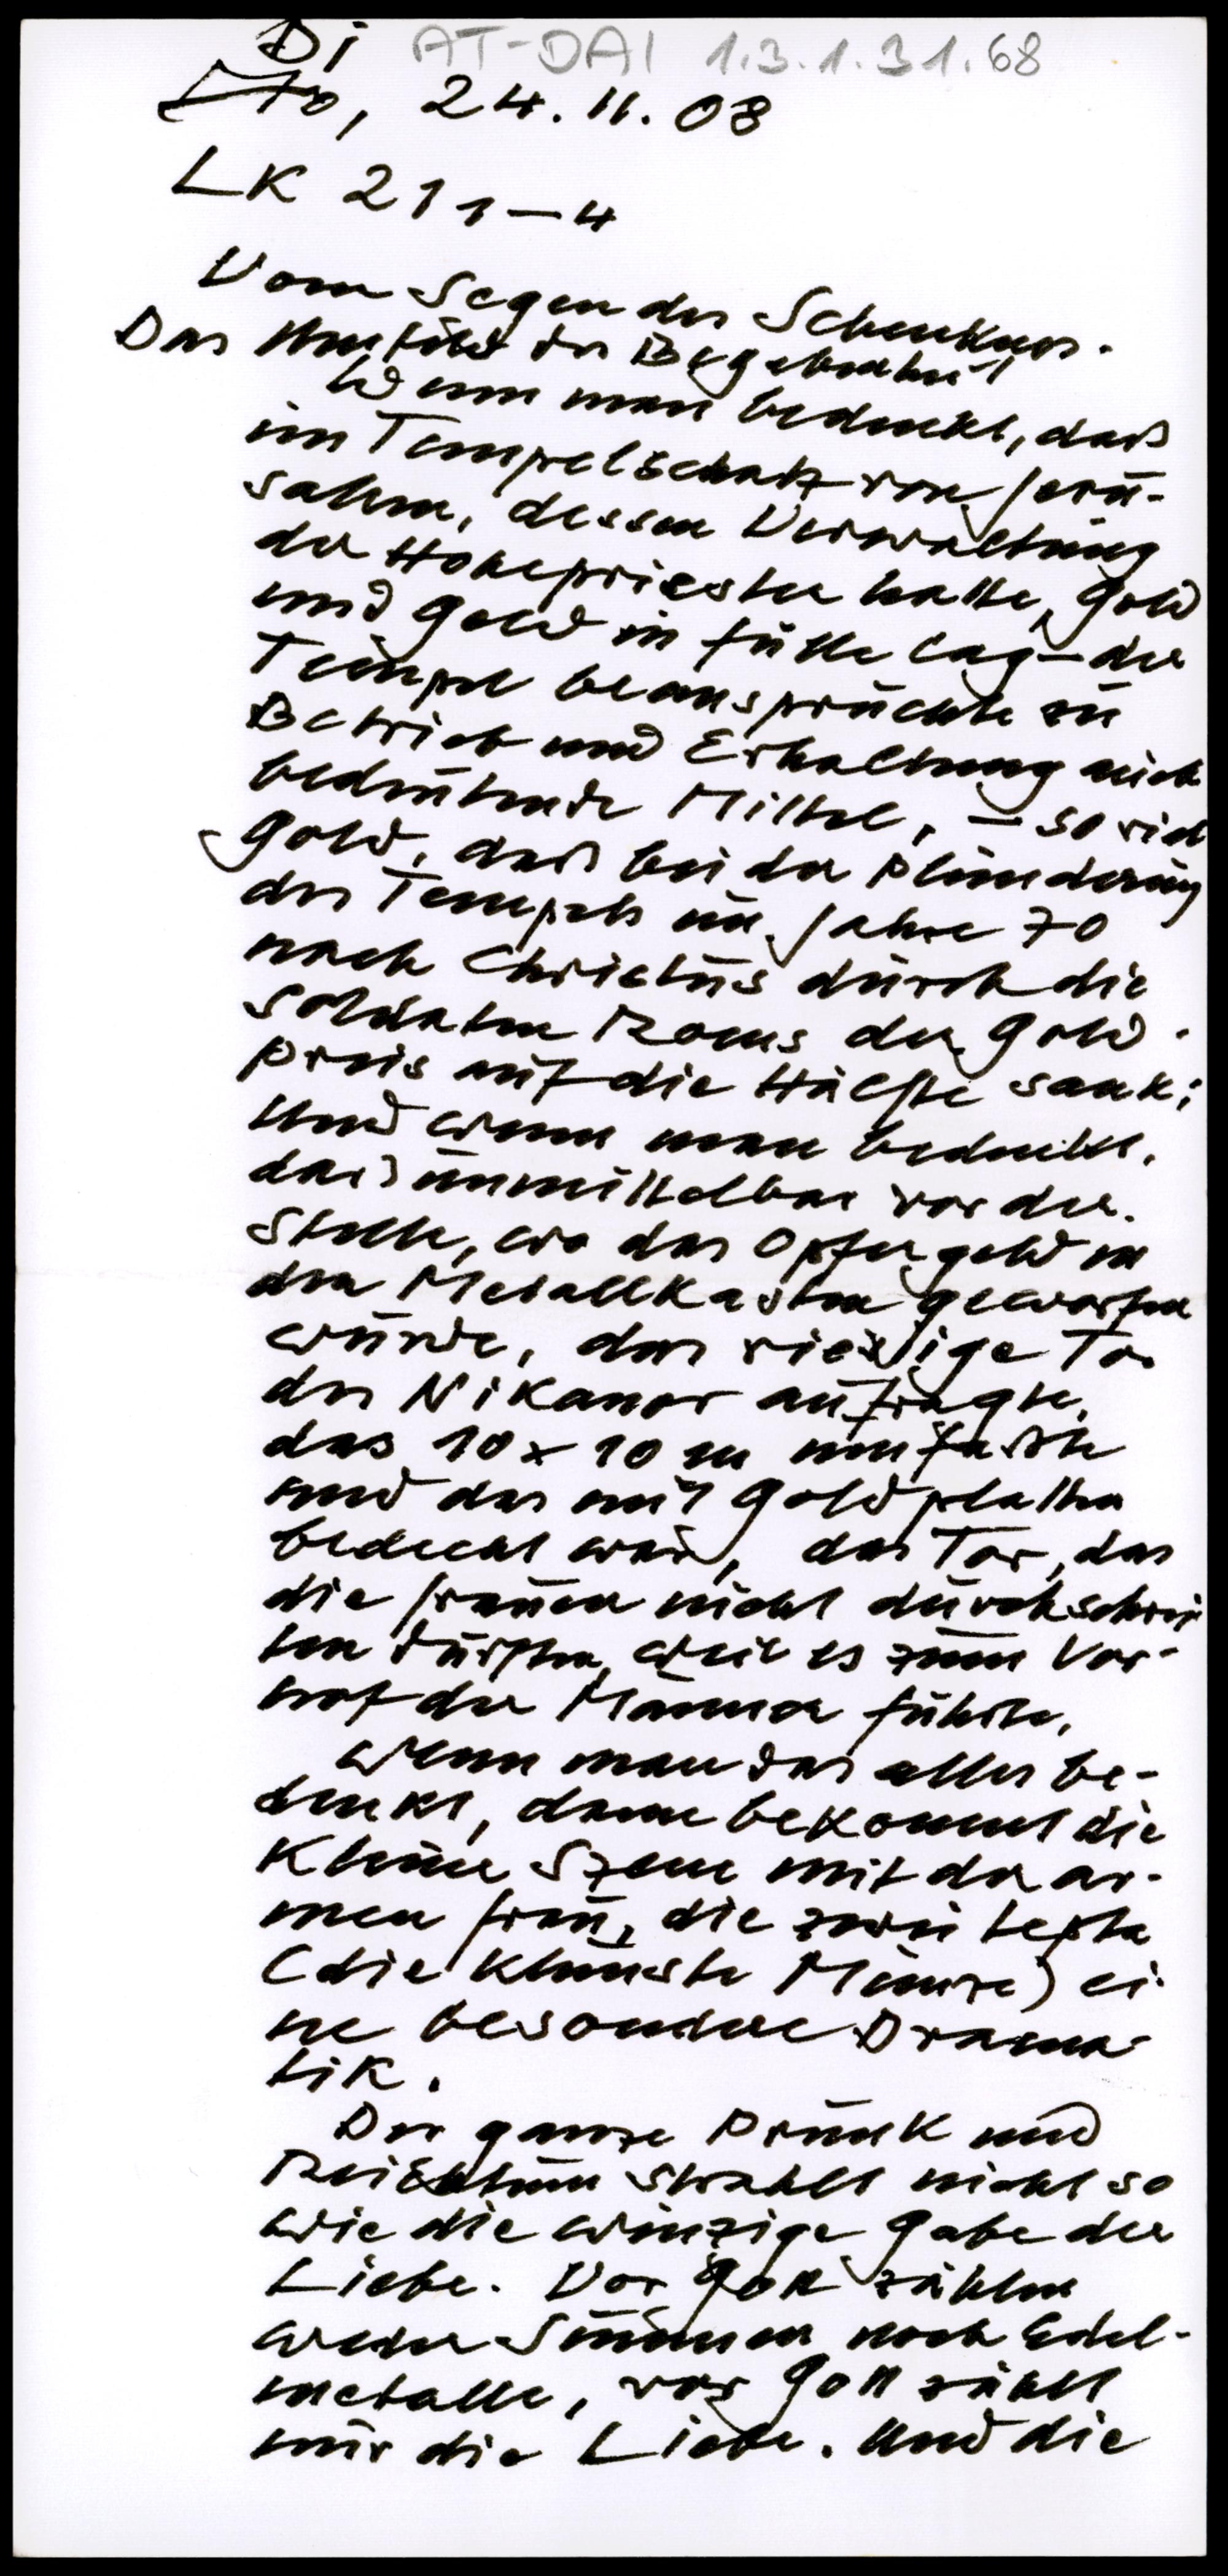 Di AT-DAI 1.3.1.31.68
Mo, 24.11.08
LK 21 1-4
Vom Segen des Schenkens.
Das Umfeld der Begebenheit
Wenn man bedenkt, daß
im Tempelschatz von Jeru-
salem, dessen Verwaltung
der Hohepriester hatte, Gold
und Geld in Fülle lag – der
Tempel beanspruchte zu
Betrieb und Erhaltung auch
bedeutende Mittel, – so viel
Gold, daß bei der Plünderung
des Tempels im Jahre 70
nach Christus durch die
Soldaten Roms der Gold-
preis auf die Hälfte sank;
und wenn man bedenkt,
daß unmittelbar vor der
Stelle, wo das Opfergeld in
den Metallkasten geworfen
wurde, das riesige Tor
des Nikanor aufragte,
das 10 x 10 m umfaßte
und das mit Goldplatten
bedeckt war, das Tor, das
die Frauen nicht durchschrei
ten durften, weil es zum Vor-
hof der Männer führte,
wenn man das alles be-
denkt, dann bekommt die
kleine Szene mit der ar-
men Frau, die zwei Lepta
(die kleinste Münze) ei-
ne besondere Drama-
tik.
Der ganze Prunk und
Reichtum strahlt nicht so
wie die winzige Gabe der
Liebe. Vor Gott zählen
weder Summen noch Edel-
metalle, vor Gott zählt
nur die Liebe. Und die